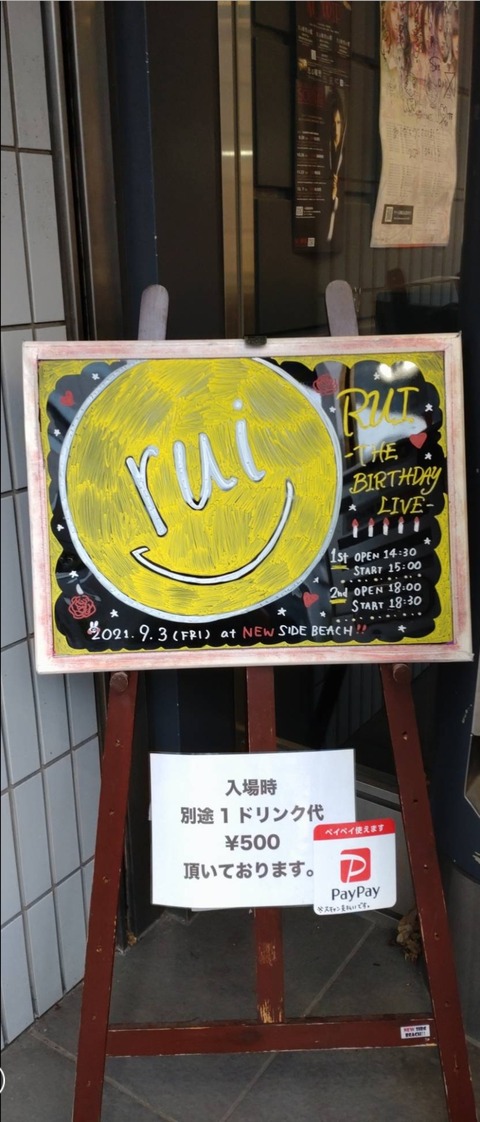 rui
RUI
-THE
BIRTHDAY
LIVE-
1st OPEN 14:30
START 15:00
2nd OPEN 18:00
START 18:30
2021. 9.3 (FRI) at NEW SIDE BEACH!!
入場時
別途1ドリンク代
¥500
頂いております。
ペイペイ使えます
PayPay
※スキャン支払いです。
NEW SIDE
BEACH!!